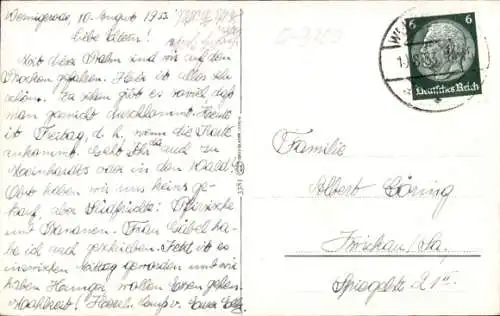 Wernigerode, 10. August 193
Liebe Eltern!
Mit dieser Bahn sind wir auf den
Brocken gefahren. Hier ist alles sehr
schön. Zu sehen gibt es soviel daß
man garnicht durchkommt. Heute
ist Freitag, d. h. wenn die Karte
ankommt. Geht Ihr da auch zu
oder in den Wald?
Obst haben wir uns keins ge-
kauft, aber Südfrüchte: Pfirsiche
und Bananen. Frau Giebel ha-
be ich auch geschrieben. Jetzt ist es
inzwischen Mittag geworden und wir
haben Hunger, wollen Essen gehen.
Mahlzeit! Herzl.
6 6
Deutsches Reich
Familie
Albert Göring
Zwickau/Sa.
Spiegelstr. 21